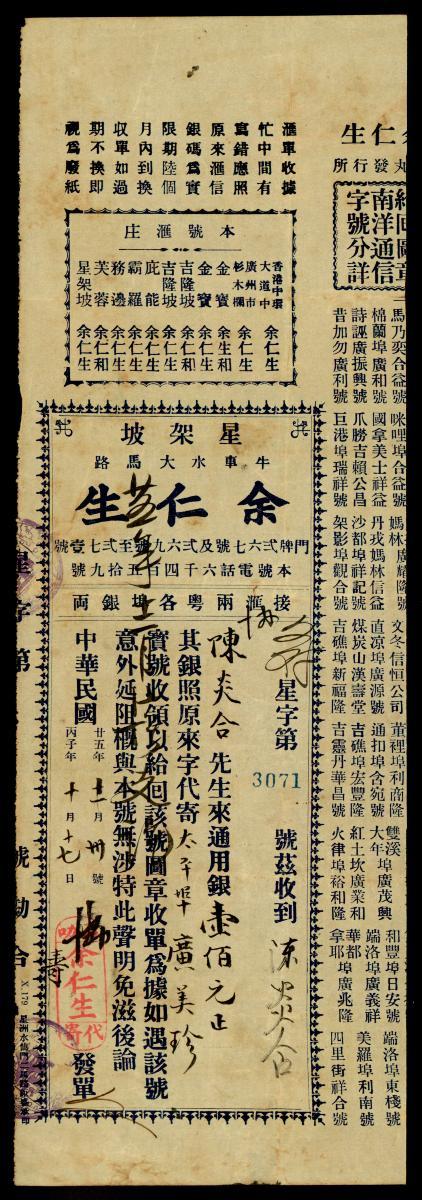 余仁生
丸發行所
南洋通信
字號分詳
馬乃奕合益號
棉蘭埠廣和號
詩誣廣振興號
昔加勿廣利號
咪哩埠合益號
國拿美士祥益
爪勝吉賴公昌
巨港埠瑞祥號
媽林廣耀隆號
丹戎媽林信益
沙都埠祥記號
架影埠觀合號
文冬信恒公司
直涼埠廣源號
煤炭山漢壽堂
吉樵埠新福隆
董裡埠利商隆
通扣埠含宛號
吉樵埠宏豐隆
吉靈丹華昌號
雙溪
大年埠廣茂興
紅土坎廣業和
火律埠裕和隆
和豐埠日安號
端洛埠廣義祥
華都
拿耶埠廣兆隆
端洛埠東棧號
美羅埠利南號
四里街祥合號
滙單收據
忙中間有
寫錯應照
原來滙信
銀碼爲實
限期陸個
月內到換
收單如過
期不換即
視爲廢紙
本號滙庄
香港中環大道中 余仁生
廣州市杉木欄 余仁生
金寶 余生和
金寶 余仁生
吉隆坡 余仁和
吉隆坡 余仁生
庇能 余仁生
霸羅 余仁生
務邊 余仁生
芙蓉 余仁和
星架坡 余仁生
星架坡
牛車水大馬路
余仁生
門牌弍六七號及弍六九號至弍七壹號
本號電話六千四百五拾九號
接滙兩粵各埠銀兩
星字第 3071 號茲收到 陳炎合
陳炎合先生來通用銀壹佰元正
其銀照原來字代寄太平埠廣美珍
寶號收領以給回該號圖章收單爲據如遇該號
意外延阻概與本號無涉特此聲明免滋後論
中華民國廿五年十一月卅號
丙子年十月十七日
余仁生
代寄
發單
星字第
號勁合
X.179